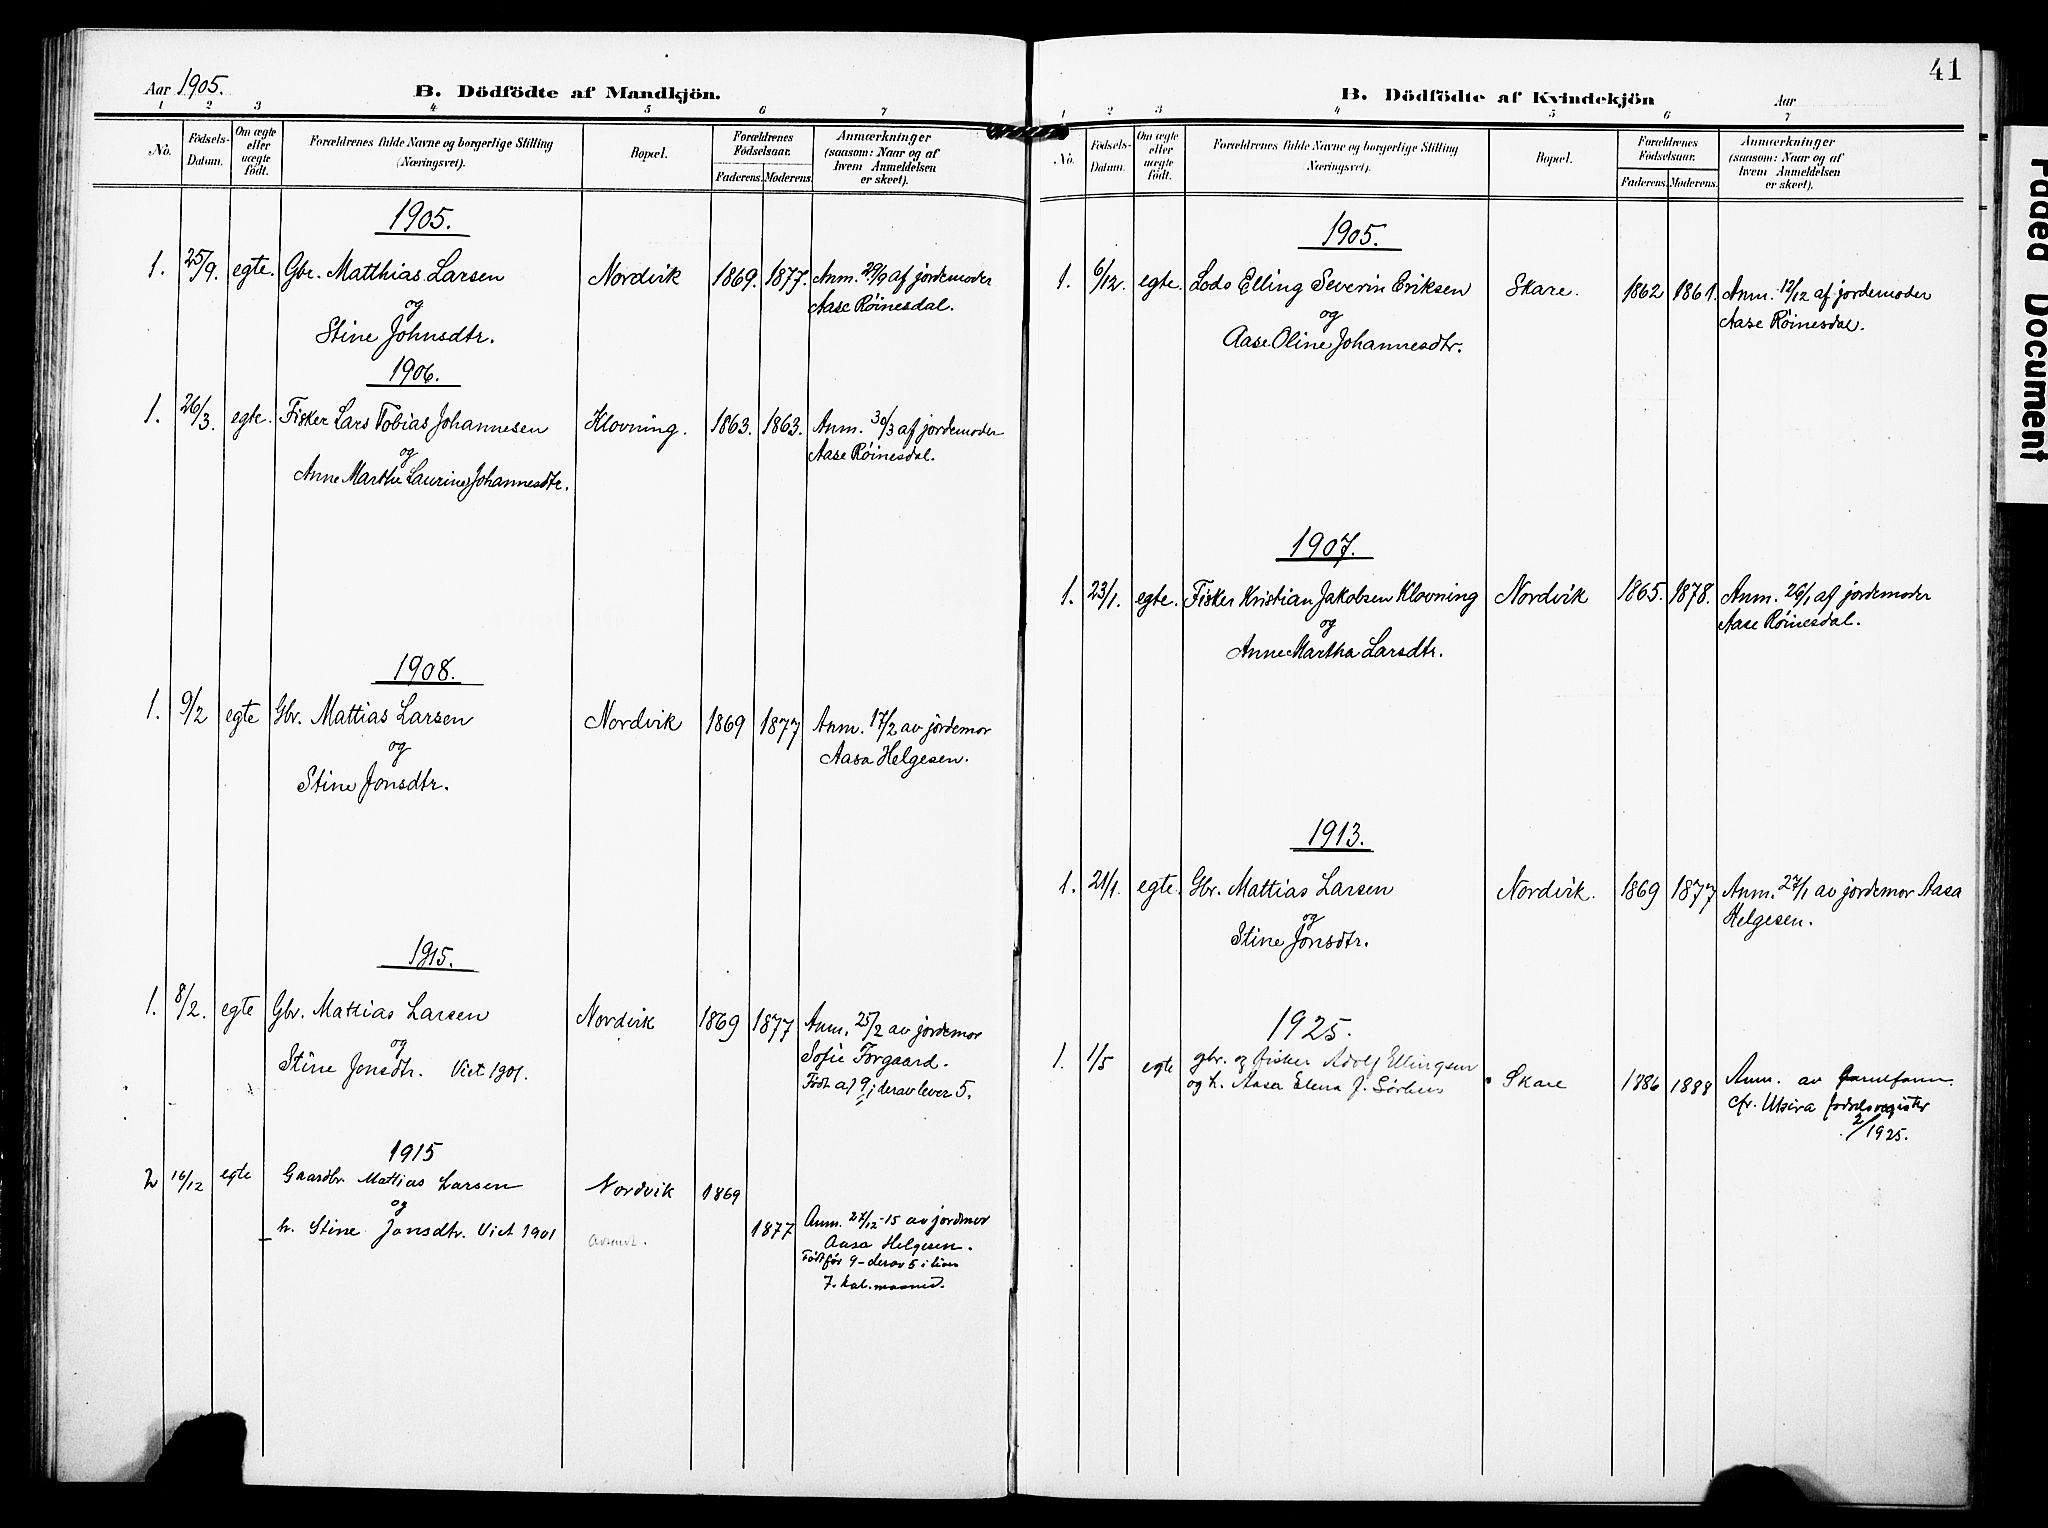 Aar 1905.
B. Dödfödte af Mandkjön.
1 2 3 4 5 6 7
No.
Födsels-Datum.
Om ægte eller uægte födt.
Forældrenes fulde Navne og borgerlige Stilling (Næringsvei).
Bopæl.
Forældrenes Födselsaar.
Faderens. Moderens.
Anmærkninger (saasom: Naar og af hvem Anmeldelsen er skeet).
1905.
1. 25/9. egte. Gbr. Matthias Larsen Nordvik 1869. 1877. Anm. 29/9 af jordemoder
og Aase Røinesdal.
Stine Johnsdtr.
1906.
1. 26/3. egte. Fisker Lars Tobias Johannesen Klovning. 1863. 1863. Anm. 30/3 af jordemoder
og Aase Røinesdal.
Anne Marthe Laurine Johannesdtr.
1908.
1. 9/2 egte Gbr. Mattias Larsen Nordvik 1869 1877 Anm. 17/2 av jordemor
og Aasa Helgesen.
Stine Jonsdtr.
1915.
1. 8/2. egte Gbr. Mattias Larsen Nordvik 1869 1877 Anm. 25/2 av jordemor
og Sofie Forgaard.
Stine Jonsdtr. Viet 1901. Født af 9; derav lever 5.
1915
2 16/12 egte Gaardbr. Mattias Larsen Nordvik 1869
og
h. Stine Jonsdtr. Viet 1901 1877 Anm. 27/12-15 av jordmor
Aasa Helgesen.
Født før 9 - derav 5 i live
7. kal. maaned.
41
B. Dödfödte af Kvindekjön
Aar
1 2 3 4 5 6 7
No.
Födsels-Datum.
Om ægte eller uægte födt.
Forældrenes fulde Navne og borgerlige Stilling Næringsvei).
Bopæl.
Forældrenes Födselsaar.
Faderens. Moderens.
Anmærkninger (saasom: Naar og af hvem Anmeldelsen er skeet).
1905.
1. 6/12. egte. Lods Elling Severin Eriksen Skare. 1862 1861. Anm. 12/12 af jordemoder
og Aase Røinesdal.
Aase Oline Johannesdtr.
1907.
1. 23/1. egte. Fisker Kristian Jakobsen Klovning Nordvik 1865. 1878. Anm. 26/1 af jordemoder
og Aase Røinesdal.
Anne Martha Larsdtr.
1913.
1. 21/1. egte. Gbr. Mattias Larsen Nordvik. 1869 1877 Anm. 27/1 av jordemor Aasa
og Helgesen.
Stine Jonsdtr.
1925.
1. 1/5 egte gbr. og fisker Adolf Ellingsen
og h. Aasa Elena J. Skare 1886 1888 Anm. av
cfr. Utsira fødselsregister
2/1925.
Faded Document